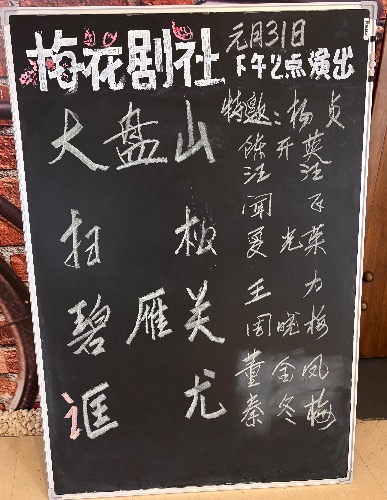 梅花剧社
元月31日
下午2点演出
大盘山
扫板
碧雁关
诓尤
特邀：杨贞
徐开英
汪汪
闻
夏光菜
王力
周晓梅
董金凤
秦冬梅